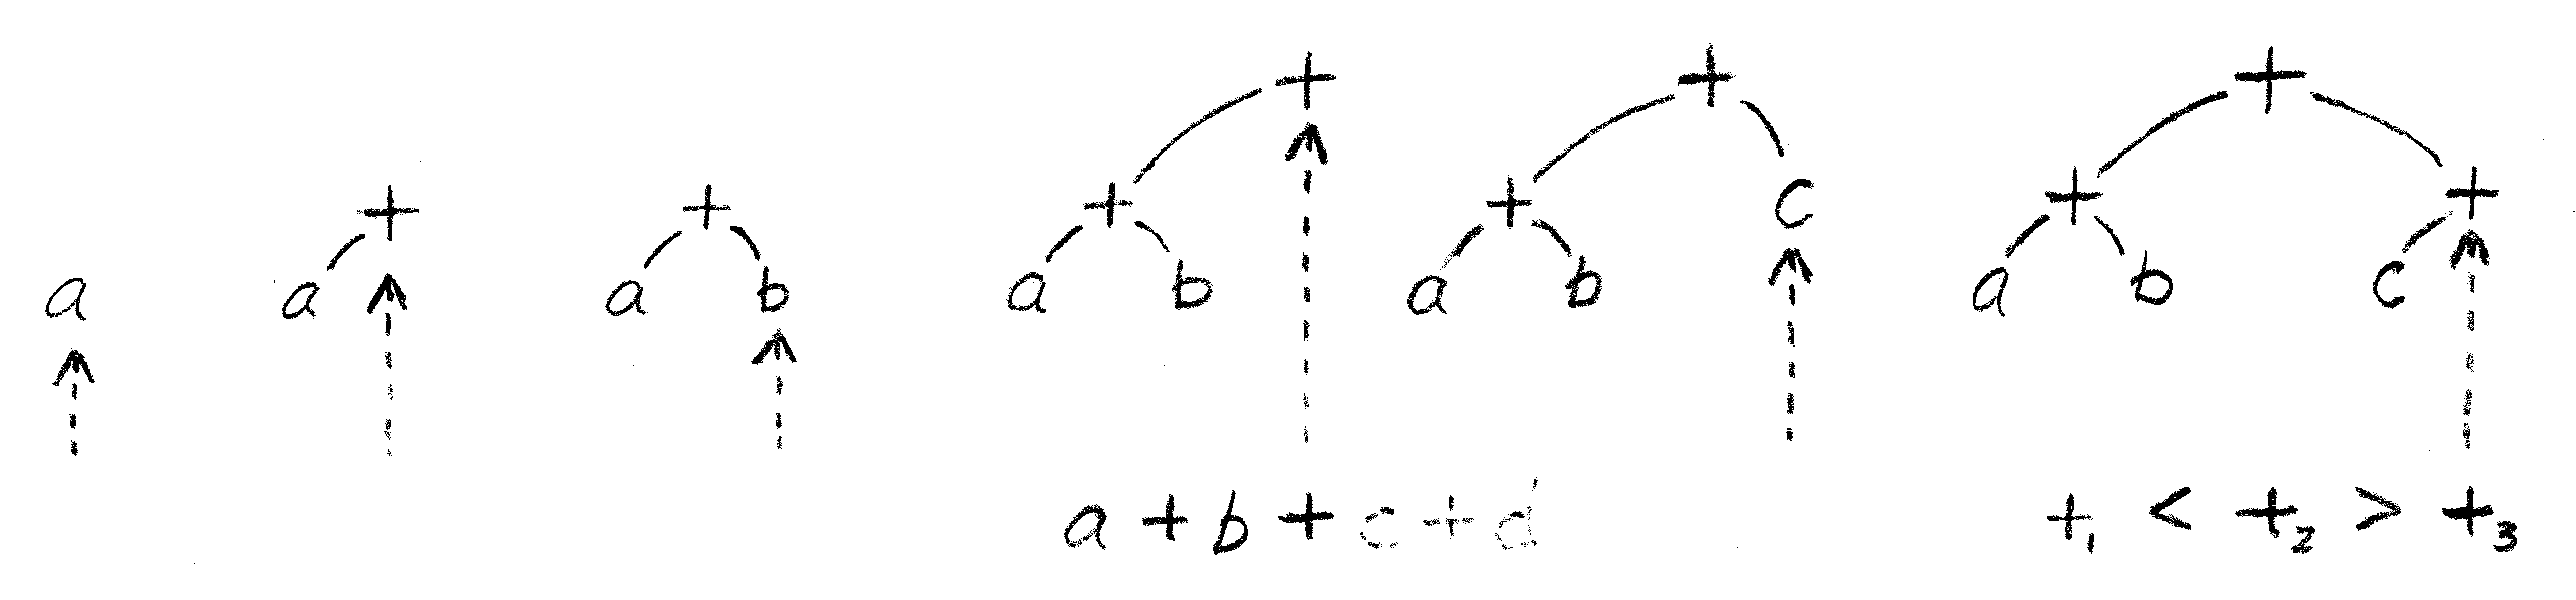 + + +
+ + + + c + +
a a a b a b a b a b c
a + b + c + d +₁ < +₂ > +₃